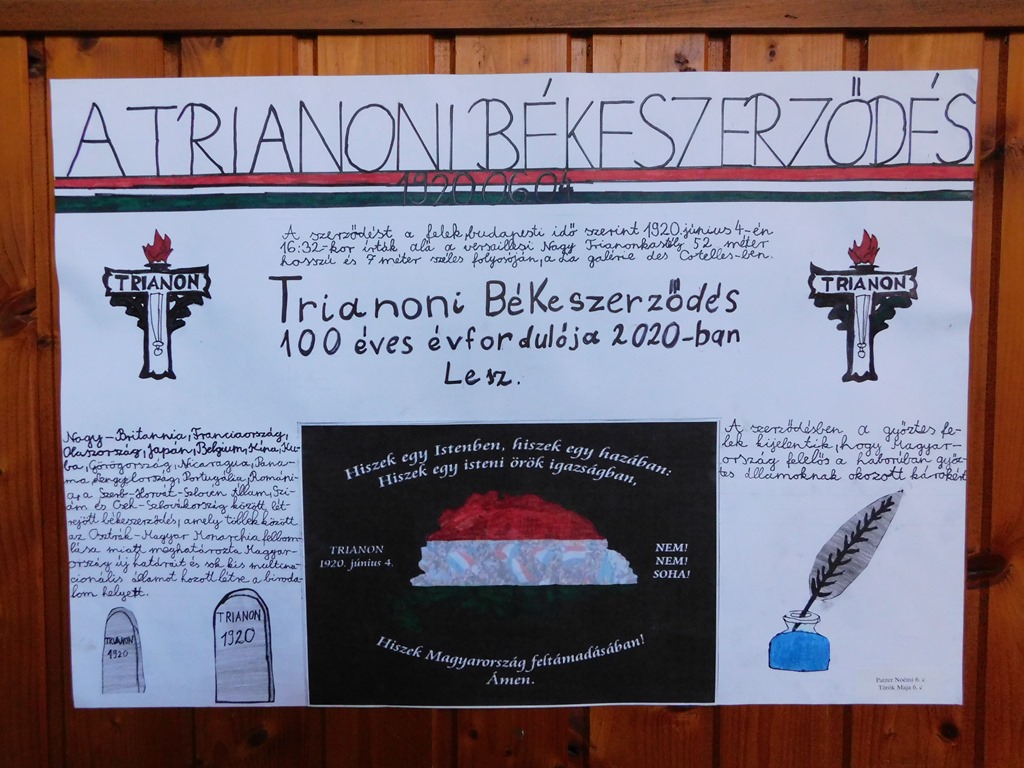 A TRIANONI BÉKESZERZŐDÉS
1920.06.04
A szerződést a felek, budapesti idő szerint 1920. június 4-én
16:32-kor írták alá a versaillesi Nagy Trianonkastély 52 méter
hosszú és 7 méter széles folyosóján, a La galérie des Cotelles-ben.
TRIANON
TRIANON
Trianoni BéKeszerződés
100 éves évfordulója 2020-ban
Lesz.
Nagy-Britannia, Franciaország,
Olaszország, Japán, Belgium, Kína, Ku-
ba, Görögország, Nicaragua, Pana-
ma, Lengyelország, Portugália, Románi-
a, a Szerb-Horvát-Szlovén Állam, Szi-
ám és Cseh-Szlovákország között lét-
rejött békeszerződés, amely többek között
az Osztrák-Magyar Monarchia felbom-
lása miatt meghatározta Magyar-
ország új határait és sok kis multina-
cionális államot hozott létre a biroda-
lom helyett.
TRIANON
1920
TRIANON
1920
Hiszek egy Istenben, hiszek egy hazában:
Hiszek egy isteni örök igazságban,
TRIANON
1920. június 4.
NEM!
NEM!
SOHA!
Hiszek Magyarország feltámadásában!
Ámen.
A szerződésben a győztes fe-
lek kijelentik, hogy Magyar-
ország felelős a háborúban győz-
tes államoknak okozott károkért
Patzer Noémi 6. c
Török Maja 6. c